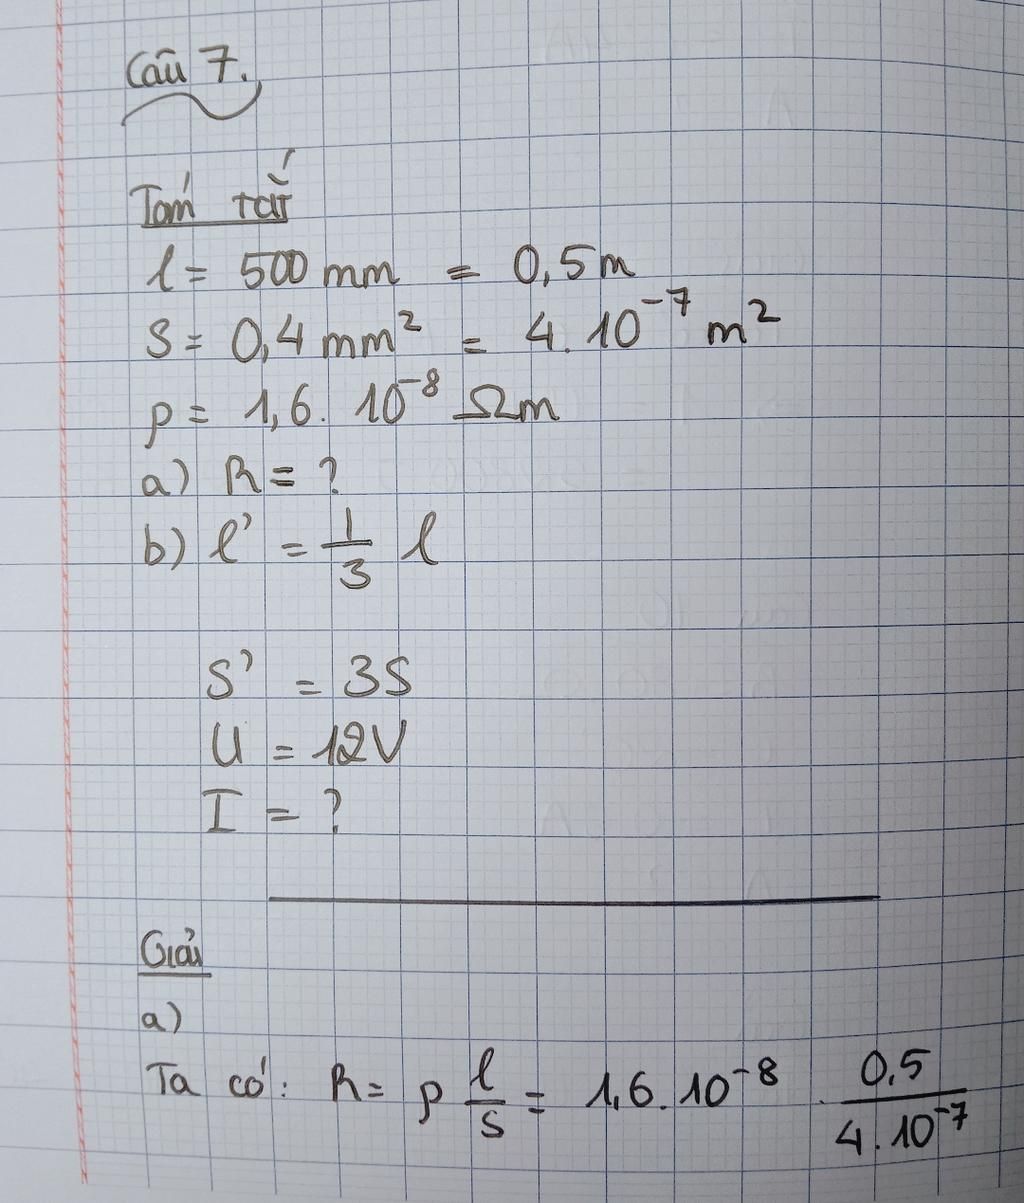 Câu 7.
Tóm tắt
l = 500 mm = 0,5 m
S = 0,4 mm² = 4. 10⁻⁷ m²
ρ = 1,6. 10⁻⁸ Ωm
a) R = ?
b) l' = 1/3 l
S' = 3S
U = 12V
I = ?
Giải
a)
Ta có: R = ρ l/S = 1,6. 10⁻⁸ . 0,5/4. 10⁻⁷